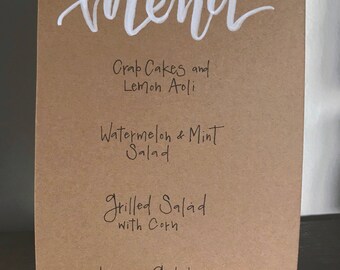 Menu
Crab Cakes and
Lemon Aoli
Watermelon & Mint
Salad
Grilled Salad
with Corn